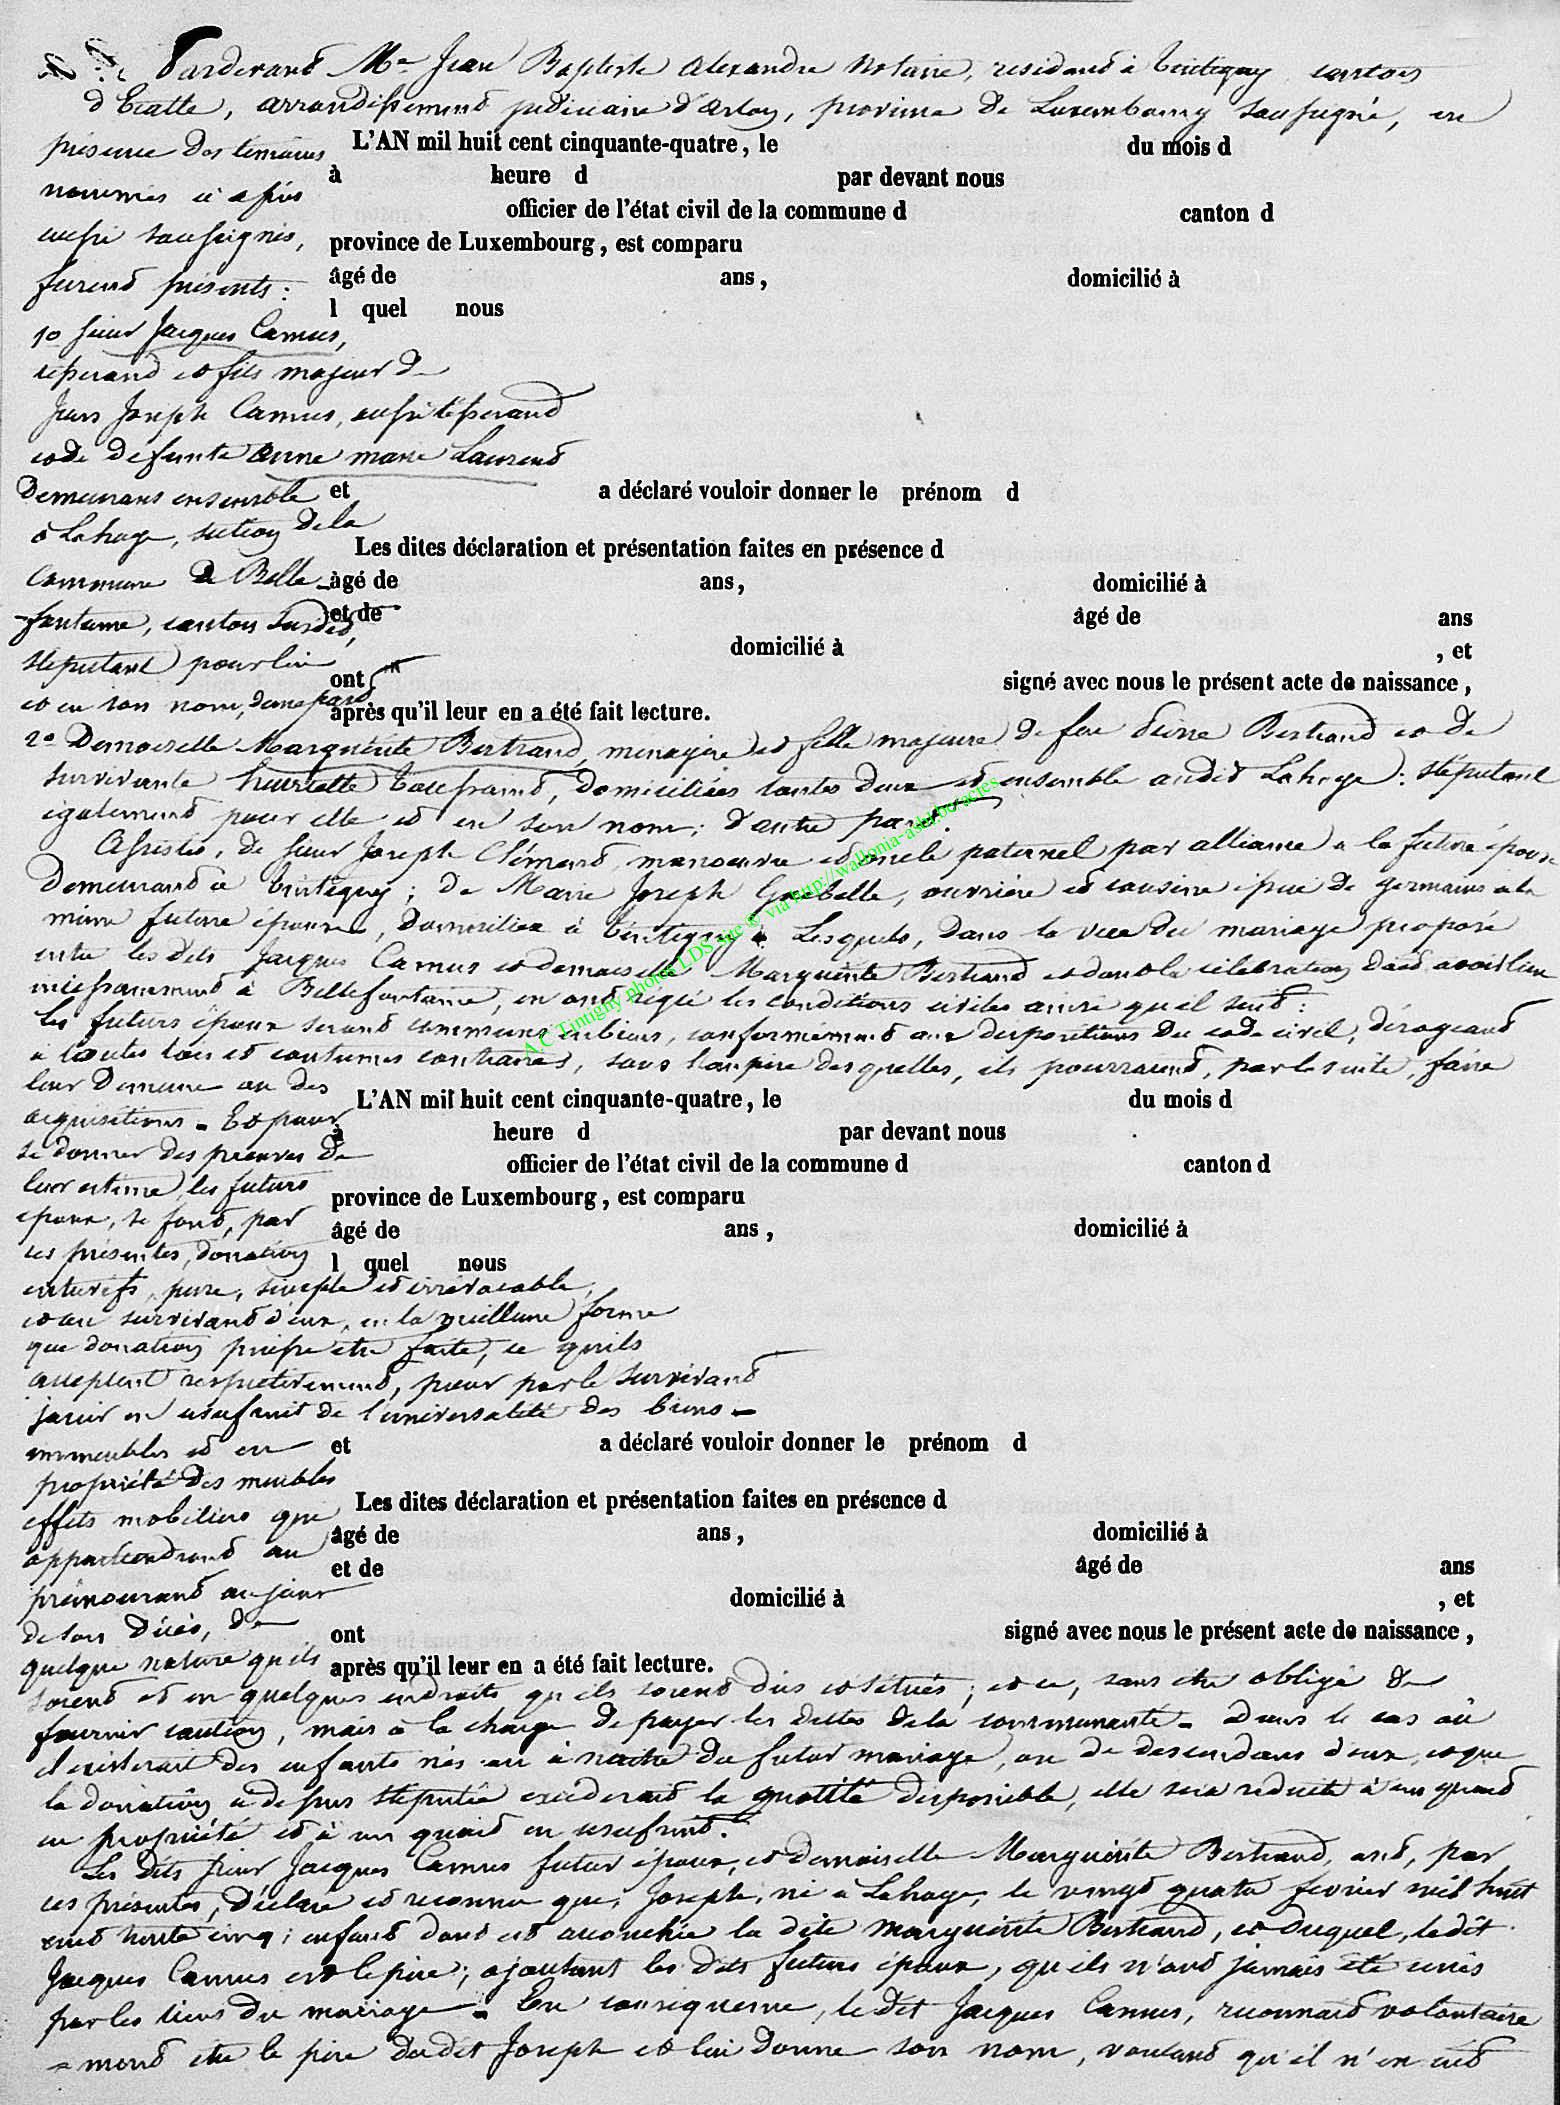 Pardevant Me Jean Baptiste Alexandre Notaire, residant à Tintigny canton
d'Etalle, arrondissement judiciaire d'Arlon, province de Luxembourg soussigné, en
présence des témoins L'AN mil huit cent cinquante-quatre, le du mois d
nommés ci après à heure d par devant nous
aussi soussignés, officier de l'état civil de la commune d canton d
province de Luxembourg, est comparu
furent présents: âgé de ans, domicilié à
l quel nous
1o sieur Jacques Camus,
tisserand et fils majeur de
Jean Joseph Camus, aussi tisserand
et de défunte Anne marie Laurent
demeurans ensemble et a déclaré vouloir donner le prénom d
à Lahage, section de la
Les dites déclaration et présentation faites en présence d
commune de Belle- âgé de ans, domicilié à
-fontaine, canton susdit, et de âgé de ans
domicilié à , et
stipulant pour lui
ont signé avec nous le présent acte de naissance,
et en son nom, d'une part après qu'il leur en a été fait lecture.
2o Demoiselle Marguerite Bertrand, menagère et fille majeure de feu Pierre Bertrand et de
survivante henriette domiciliées toutes deux et ensemble audit Lahage: stipulant
également pour elle et en son nom; d'autre part.
Assistés, de sieur Joseph Clémant, manoeuvre et oncle paternel par alliance a la future épouse
demeurant à Tintigny; de Marie Joseph Goebelle, ouvrière et cousine issue de germains a la
même future épouse, domiciliée à Tintigny. Lesquels, dans la vue du mariage proposé
entre les dits Jacques Camus et demoiselle Marguerite Bertrand et dont la célébration doit avoir lieu
incessamment à Bellefontaine, en ont réglé les conditions civiles ainsi qu'il suit:
les futurs époux seront communs en biens, conformément aux dispositions du code civil, dérogeant
à toutes lois et coutumes contraires, sous l'empire desquelles, ils pourraient, par la suite, faire
leur demeure ou des
L'AN mil huit cent cinquante-quatre, le du mois d
acquisitions. Et pour
à heure d par devant nous
se donner des preuves de
officier de l'état civil de la commune d canton d
leur estime, les futurs
province de Luxembourg, est comparu
époux, se font, par
âgé de ans, domicilié à
ces présentes, donation
l quel nous
entrevifs, pure, simple et irrévocable,
et au survivant d'eux, en la meilleure forme
que donation puisse être faite, ce qu'ils
acceptent respectivement, pour par le survivant
jouir en usufruit de l'universalité des biens
immeubles et en et a déclaré vouloir donner le prénom d
propriété des meubles
Les dites déclaration et présentation faites en présence d
effets mobiliers que
âgé de ans, domicilié à
appartiendront au
et de âgé de ans
prémourant au jour
domicilié à , et
de son décès, de
ont signé avec nous le présent acte de naissance,
quelque nature qu'ils après qu'il leur en a été fait lecture.
soient et en quelques endroits qu'ils soient dus et situés; et ce, sans être obligé de
fournir caution, mais à la charge de payer les dettes de la communauté. Dans le cas où
il existerait des enfants nés ou à naitre du futur mariage, ou de descendans d'eux, et que
la donation ci dessus stipulée excéderait la quotité disponible, elle sera reduite à un quart
en propriété et à un quart en usufruit.
Les dits sieur Jacques Camus futur époux, et demoiselle Marguerite Bertrand, ont, par
ces présentes, déclaré et reconnu que, Joseph, né a Lahage, le vingt quatre fevrier mil huit
cent trente cinq; enfant dont est accouchée la dite Marguerite Bertrand, et duquel, le dit
Jacques Camus est le père; ajoutant les dits futurs époux, qu'ils n'ont jamais été unis
par les liens du mariage. En conséquence, le dit Jacques Camus, reconnait volontaire
=ment être le père dudit Joseph et lui donne son nom, voulant qu'il n'en ait
A.C Tintigny photos LDS site © via http://wallonia-asbl.be/actes